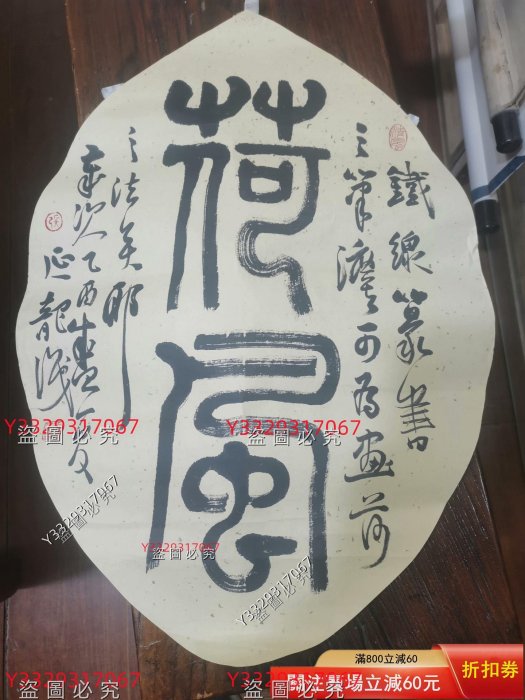 荷風
鐵線篆書
之筆可為畫荷
之法矣耶
歲次乙酉盛夏
延龍識
Y3329317067
盜圖必究
Y3329317067
盜圖必究
Y3329317067
盜圖必究
Y3329317067
盜圖必究
Y3329317067
盜圖必究
Y3329317067
盜圖必究
盜圖必究
滿800立減60
關注賣場立減60元
折扣券